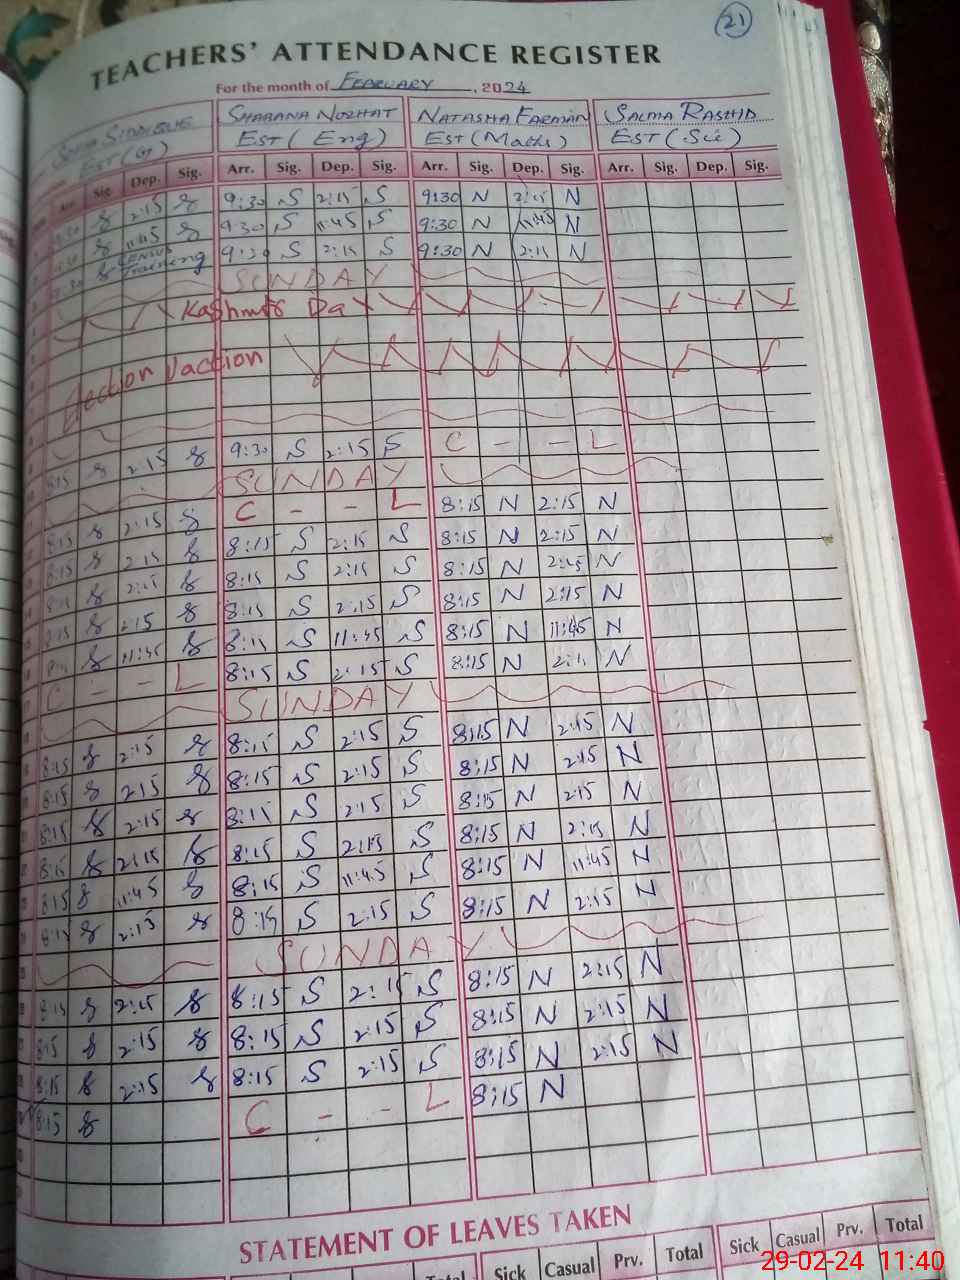 21
TEACHERS' ATTENDANCE REGISTER
For the month of February, 2024
SIDDIQUE SHABANA NUZHAT NATASHA FARMAN SALMA RASHID
EST (G) EST (Eng) EST (Maths) EST (Sci)
Arr. Sig. Dep. Sig. Arr. Sig. Dep. Sig. Arr. Sig. Dep. Sig. Arr. Sig. Dep. Sig.
9:30 2:15 9:30 S 2:15 S 9:30 N 2:15 N
9:30 11:45 9:30 S 11:45 S 9:30 N 11:45 N
9:30 Census Training 9:30 S 2:15 S 9:30 N 2:15 N
SUNDAY
Kashmir Day
Election Vaction
8:15 2:15 9:30 S 2:15 S C - - L
SUNDAY
8:15 2:15 C - - L 8:15 N 2:15 N
8:15 2:15 8:15 S 2:15 S 8:15 N 2:15 N
8:15 2:15 8:15 S 2:15 S 8:15 N 2:15 N
8:15 2:15 8:15 S 2:15 S 8:15 N 2:15 N
8:15 11:45 8:15 S 11:45 S 8:15 N 11:45 N
C - - L 8:15 S 2:15 S 8:15 N 2:15 N
SUNDAY
8:15 2:15 8:15 S 2:15 S 8:15 N 2:15 N
8:15 2:15 8:15 S 2:15 S 8:15 N 2:15 N
8:15 2:15 8:15 S 2:15 S 8:15 N 2:15 N
8:15 2:15 8:15 S 2:15 S 8:15 N 2:15 N
8:15 11:45 8:15 S 11:45 S 8:15 N 11:45 N
8:15 2:15 8:15 S 2:15 S 8:15 N 2:15 N
SUNDAY
8:15 2:15 8:15 S 2:15 S 8:15 N 2:15 N
8:15 2:15 8:15 S 2:15 S 8:15 N 2:15 N
8:15 2:15 8:15 S 2:15 S 8:15 N 2:15 N
8:15 C - - L 8:15 N
STATEMENT OF LEAVES TAKEN
Total Sick Casual Prv. Total Sick Casual Prv. Total
29-02-24 11:40